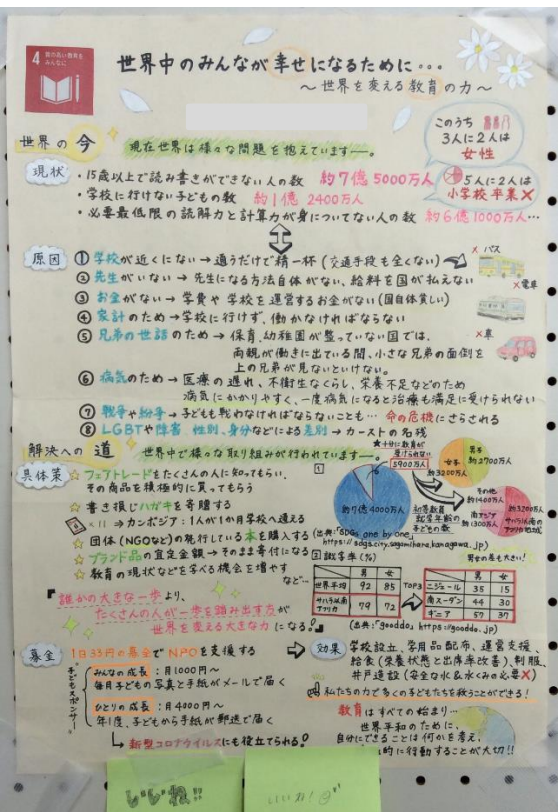 4 質の高い教育を
みんなに
世界中のみんなが幸せになるために・・・
～世界を変える教育の力～
世界の今
現在世界は様々な問題を抱えています―。
このうち
3人に2人は
女性
現状
・15歳以上で読み書きができない人の数 約7億5000万人
・学校に行けない子どもの数 約1億2400万人
・必要最低限の読解力と計算力が身についてない人の数 約6億1000万人…
5人に2人は
小学校卒業×
原因
①学校が近くにない→通うだけで精一杯(交通手段も全くない)
×バス
②先生がいない→先生になる方法自体がない、給料を国が払えない
×電車
③お金がない→学費や学校を運営するお金がない(国自体貧しい)
④家計のため→学校に行けず、働かなければならない
×車
⑤兄弟の世話のため→保育、幼稚園が整っていない国では、
両親が働きに出ている間、小さな兄弟の面倒を
上の兄弟が見ないといけない。
⑥病気のため→医療の遅れ、不衛生なくらし、栄養不足などのため
病気にかかりやすく、一度病気になると治療も満足に受けられない
⑦戦争や紛争→子どもも戦わなければならないことも…命の危機にさらされる
⑧LGBTや障害、性別、身分などによる差別→カーストの名残
解決への道
世界中で様々な取り組みが行われています―。
具体策
☆フェアトレードをたくさんの人に知ってもらい、
その商品を積極的に買ってもらう
☆書き損じハガキを寄贈する
<11⇒カンボジア:1人が1か月学校へ通える
☆団体(NGOなど)の発行している本を購入する
☆ブランド品の査定金額→そのまま寄付になる
☆教育の現状などを学べる機会を増やす
など…
『誰かの大きな一歩より、
たくさんの人が一歩を踏み出す方が
世界を変える大きな力になる!』
1
★十分に教育が
受けられない
5900万人
約7億4000万人
初等教育
就学年齢の
子どもの数
女子
約3200万人
男子
約2700万人
その他
約1400万人
南アジア
約1300万人
約3200万人
サハラ以南の
アフリカ地域
(出典:「SDGs one by one」
https://sdgs.city.sagamihara.kanagawa.jp)
2 識字率(%)
男女の差も大きい!
男 女
世界平均 92 85
サハラ以南
アフリカ 79 72
TOP3
男 女
ニジェール 35 15
南スーダン 44 30
ギニア 57 37
(出典:「gooddo」https://gooddo.jp)
募金
1日33円の募金でNPOを支援する
子どもスポンサー
みんなの成長:月1000円～
毎月子どもの写真と手紙がメールで届く
ひとりの成長:月4000円～
年1度、子どもから手紙が郵送で届く
新型コロナウイルスにも役立てられる!
効果
学校設立、学用品配布、運営支援、
給食(栄養状態と出席率改善)、制服、
井戸造設(安全な水&水くみの必要×)
私たちの力で多くの子どもたちを救うことができる!
教育はすべての始まり…
世界平和のために、
自分にできることは何かを考え、
的に行動することが大切!!
いいね!!
いいね!